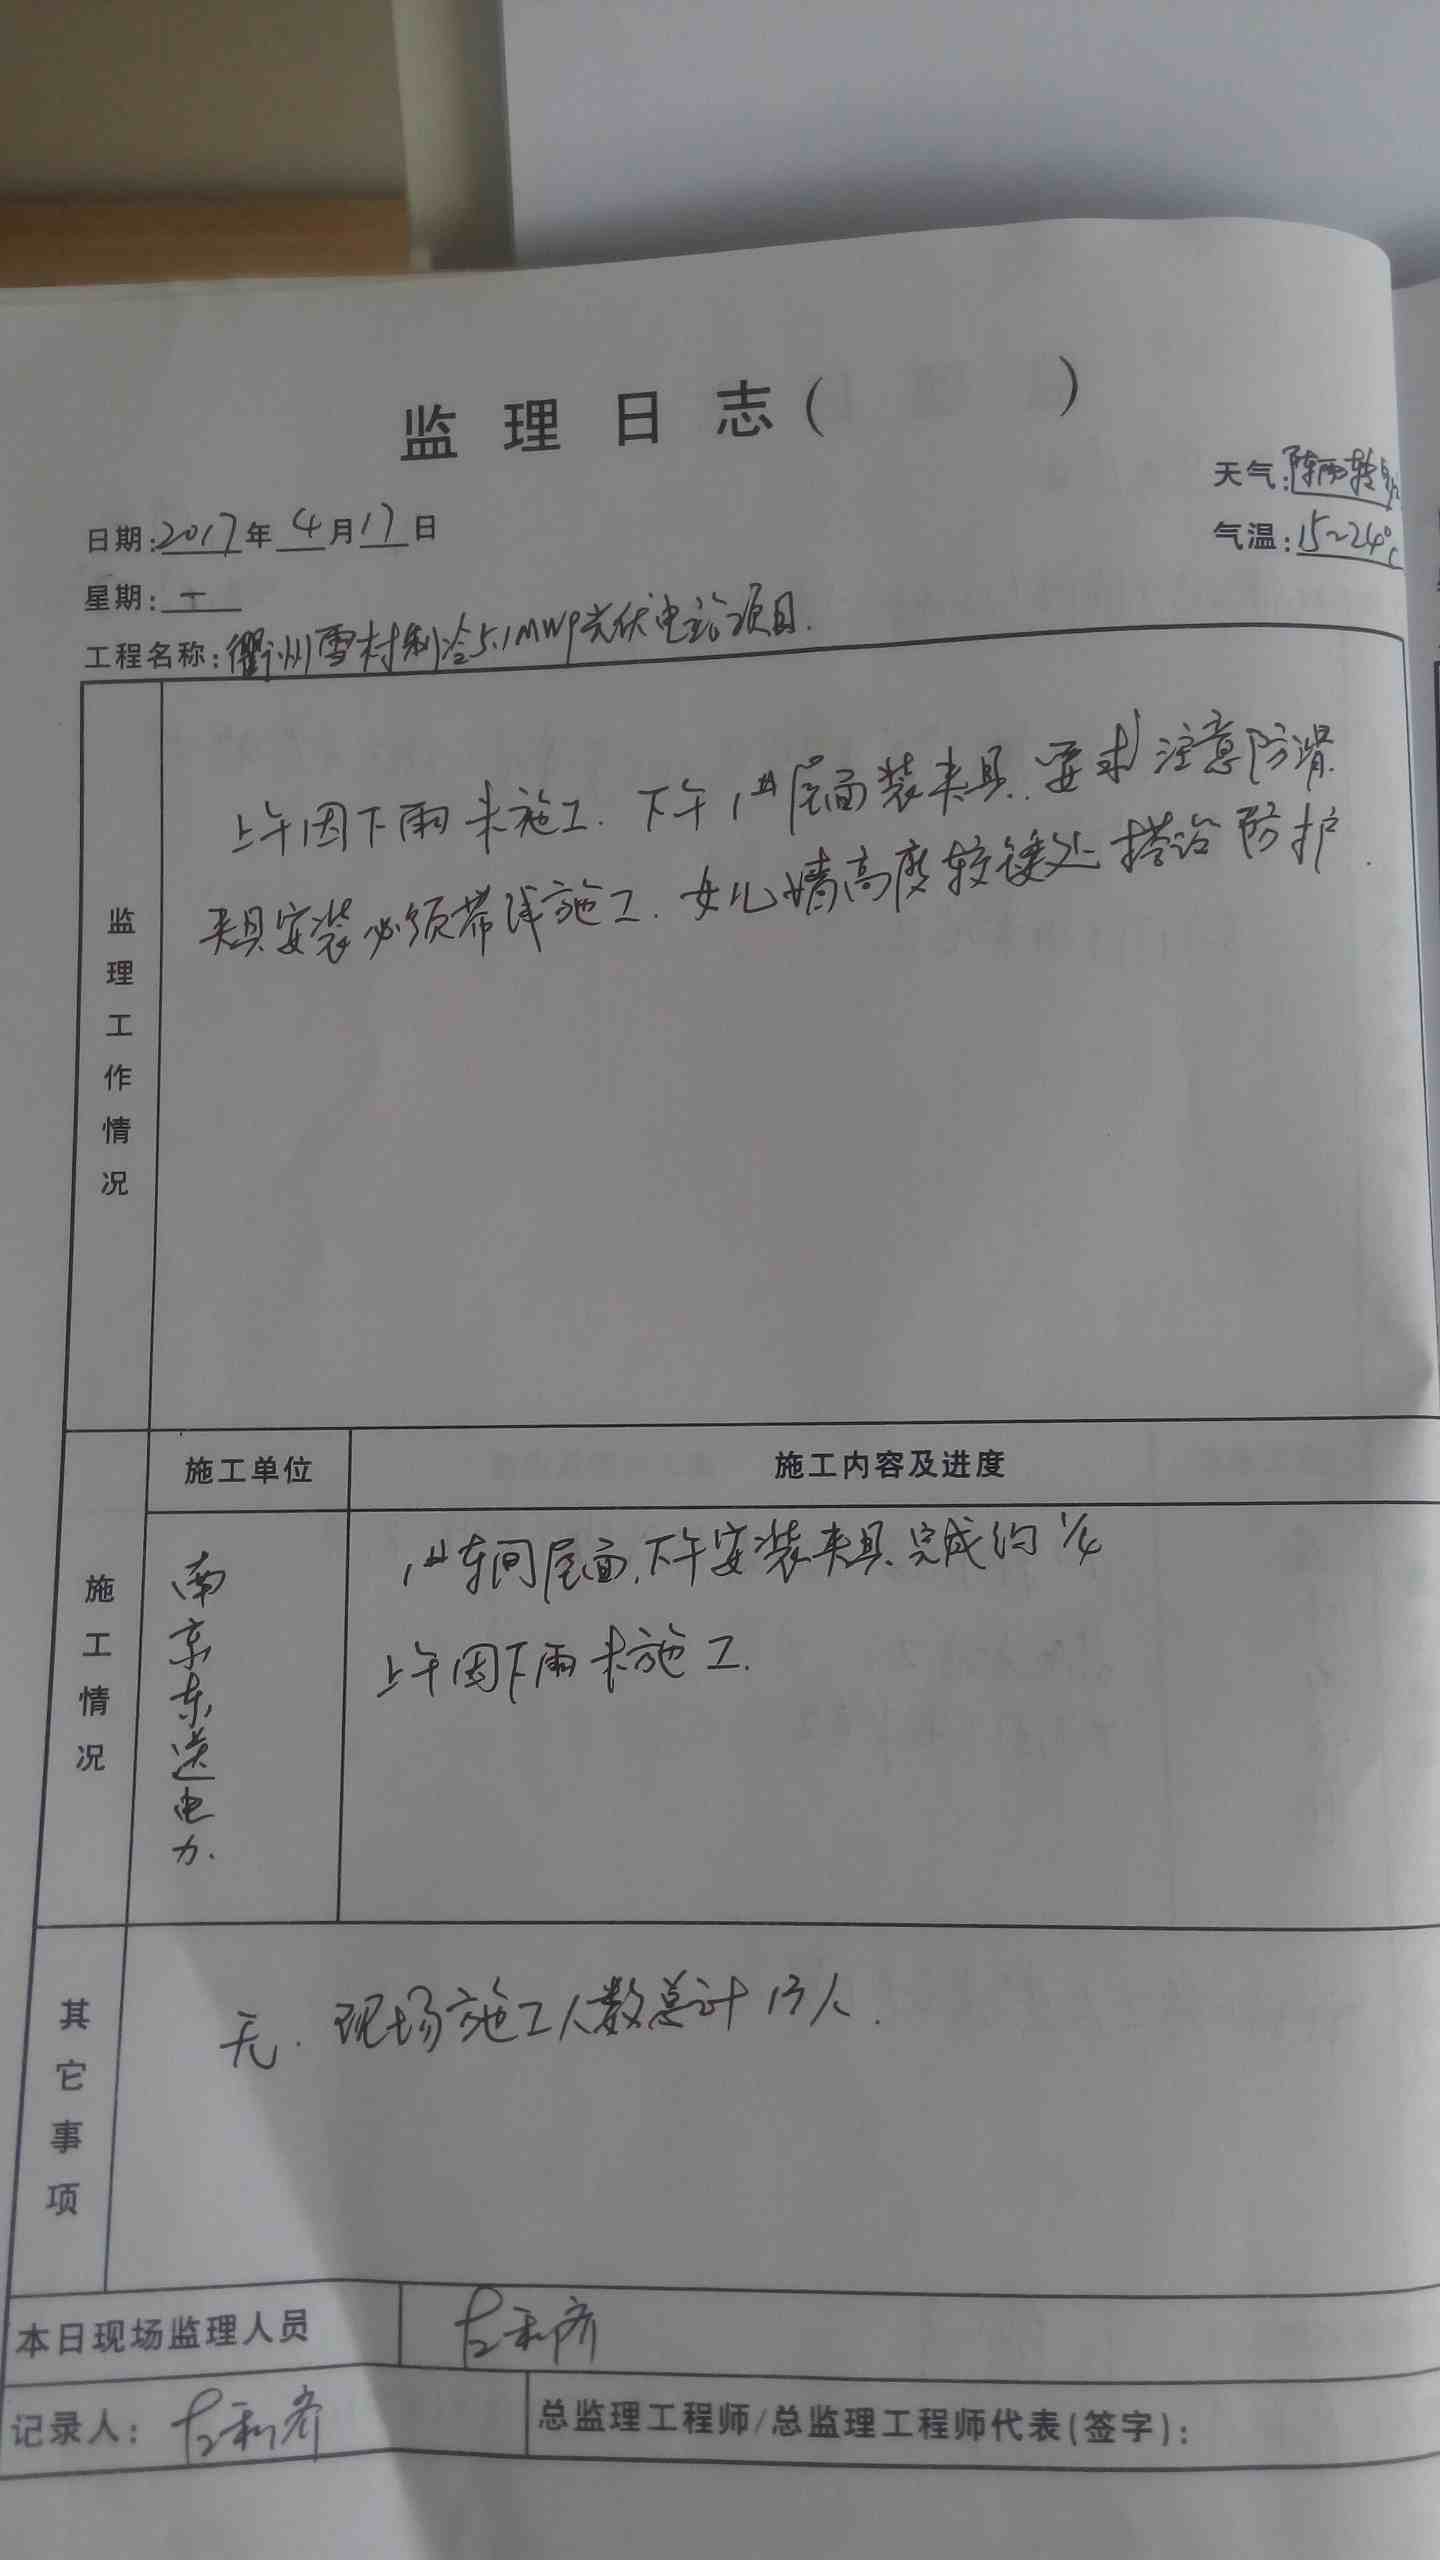 监理日志（ ）
天气：阵雨转
日期：2017年4月17日
气温：15~24℃
星期：一
工程名称：衢州雪村制冷5.1MWp光伏电站项目.
监理工作情况
上午因下雨未施工.下午1#屋面装夹具.要求注意防滑.
夹具安装必须带线施工.女儿墙高度较矮处搭设防护.
施工情况
施工单位
施工内容及进度
南京东送电力.
1#车间屋面,下午安装夹具完成约1/4
上午因下雨未施工.
其它事项
无.现场施工人数总计13人.
本日现场监理人员
记录人：
总监理工程师/总监理工程师代表(签字)：